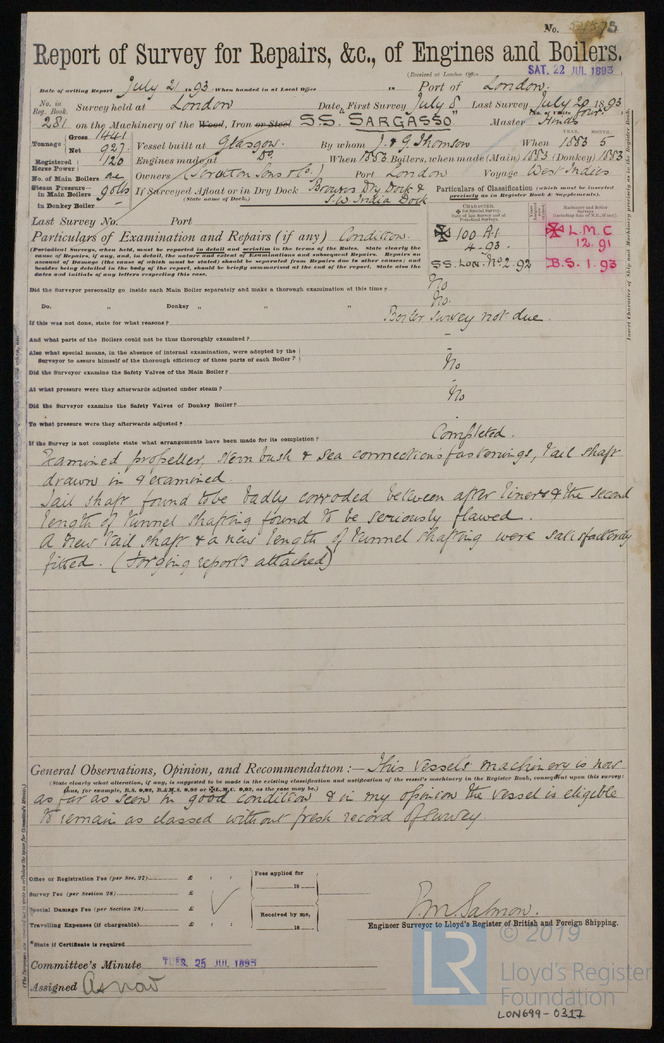 No. 75
Report of Survey for Repairs, &c., of Engines and Boilers.
(Received at London Office SAT. 22 JUL 1893
Date of writing Report July 21 1893 When handed in at Local Office 18 Port of London.
No. in Reg. Book. Survey held at London Date, First Survey July 8 Last Survey July 20 1893
(No. of Visits four)
281 on the Machinery of the Wood, Iron or Steel S.S. "SARGASSO" Master Hinds
Tonnage Gross 1441 Net 927 Vessel built at Glasgow. By whom J. & G. Thomson When YEAR. 1883 MONTH. 5
Registered Horse Power 120 Engines made at Do. When 1883 Boilers, when made (Main) 1883 (Donkey) 1883
No. of Main Boilers one Owners Scrutton Sons & Co. Port London Voyage West Indies
Steam Pressure in Main Boilers 90 lbs If Surveyed Afloat or in Dry Dock Browns Dry Dock & S.W. India Dock
(State name of Dock.)
in Donkey Boiler —
Particulars of Classification (which must be inserted precisely as in Register Book & Supplements).
Last Survey No. Port
CHARACTER.
Machinery and Boiler Surveys
✠ 100 A1
4.93.
SS. Lon. No2.92
✠ L.M.C
12.91
B.S. 1.93
Particulars of Examination and Repairs (if any) Condition.
(Periodical Surveys, when held, must be reported in detail and seriatim in the terms of the Rules. State clearly the
cause of Repairs, if any, and, in detail, the nature and extent of Examinations and subsequent Repairs. Repairs on
account of Damage (the cause of which must be stated) should be separated from Repairs due to other causes; and
besides being detailed in the body of the report, should be briefly summarised at the end of the report. State also the
dates and initials of any letters respecting this case.
Did the Surveyor personally go inside each Main Boiler separately and make a thorough examination at this time? No
Do. " Donkey " " " No.
If this was not done, state for what reasons? Boiler Survey not due.
And what parts of the Boilers could not be thus thoroughly examined? —
Also what special means, in the absence of internal examination, were adopted by the
Surveyor to assure himself of the thorough efficiency of those parts of each Boiler? —
Did the Surveyor examine the Safety Valves of the Main Boiler? No
At what pressure were they afterwards adjusted under steam? —
Did the Surveyor examine the Safety Valves of Donkey Boiler? No
To what pressure were they afterwards adjusted? —
If the Survey is not complete state what arrangements have been made for its completion? Completed.
Examined propeller, stern bush & sea connections fastenings, tail shaft
drawn in & examined.
Tail shaft found to be badly corroded between after liners & the second
length of tunnel shafting found to be seriously flawed.
A new tail shaft & a new length of tunnel shafting were satisfactorily
fitted. (Forging reports attached)
General Observations, Opinion, and Recommendation:— This Vessel's machinery is now
(State clearly what alteration, if any, is suggested to be made in the existing classification and notification of the vessel's machinery in the Register Book, consequent upon this survey:
thus, for example, B.S. 9,92, B.&M.S. 9,92 or ✠L.M.C. 9,92, as the case may be.)
as far as seen in good condition & in my opinion the vessel is eligible
to remain as classed without fresh record of survey.
Office or Registration Fee (per Sec. 27) £ : :
Survey Fee (per Section 28) £
Special Damage Fee (per Section 28) £
Travelling Expenses (if chargeable) £ : :
Fees applied for
18
Received by me,
18
*State if Certificate is required
P. M. Salmon.
Engineer Surveyor to Lloyd's Register of British and Foreign Shipping.
Committee's Minute TUES. 25 JUL 1893
Assigned As now
LR
© 2019
Lloyd's Register
Foundation
LON699-0317